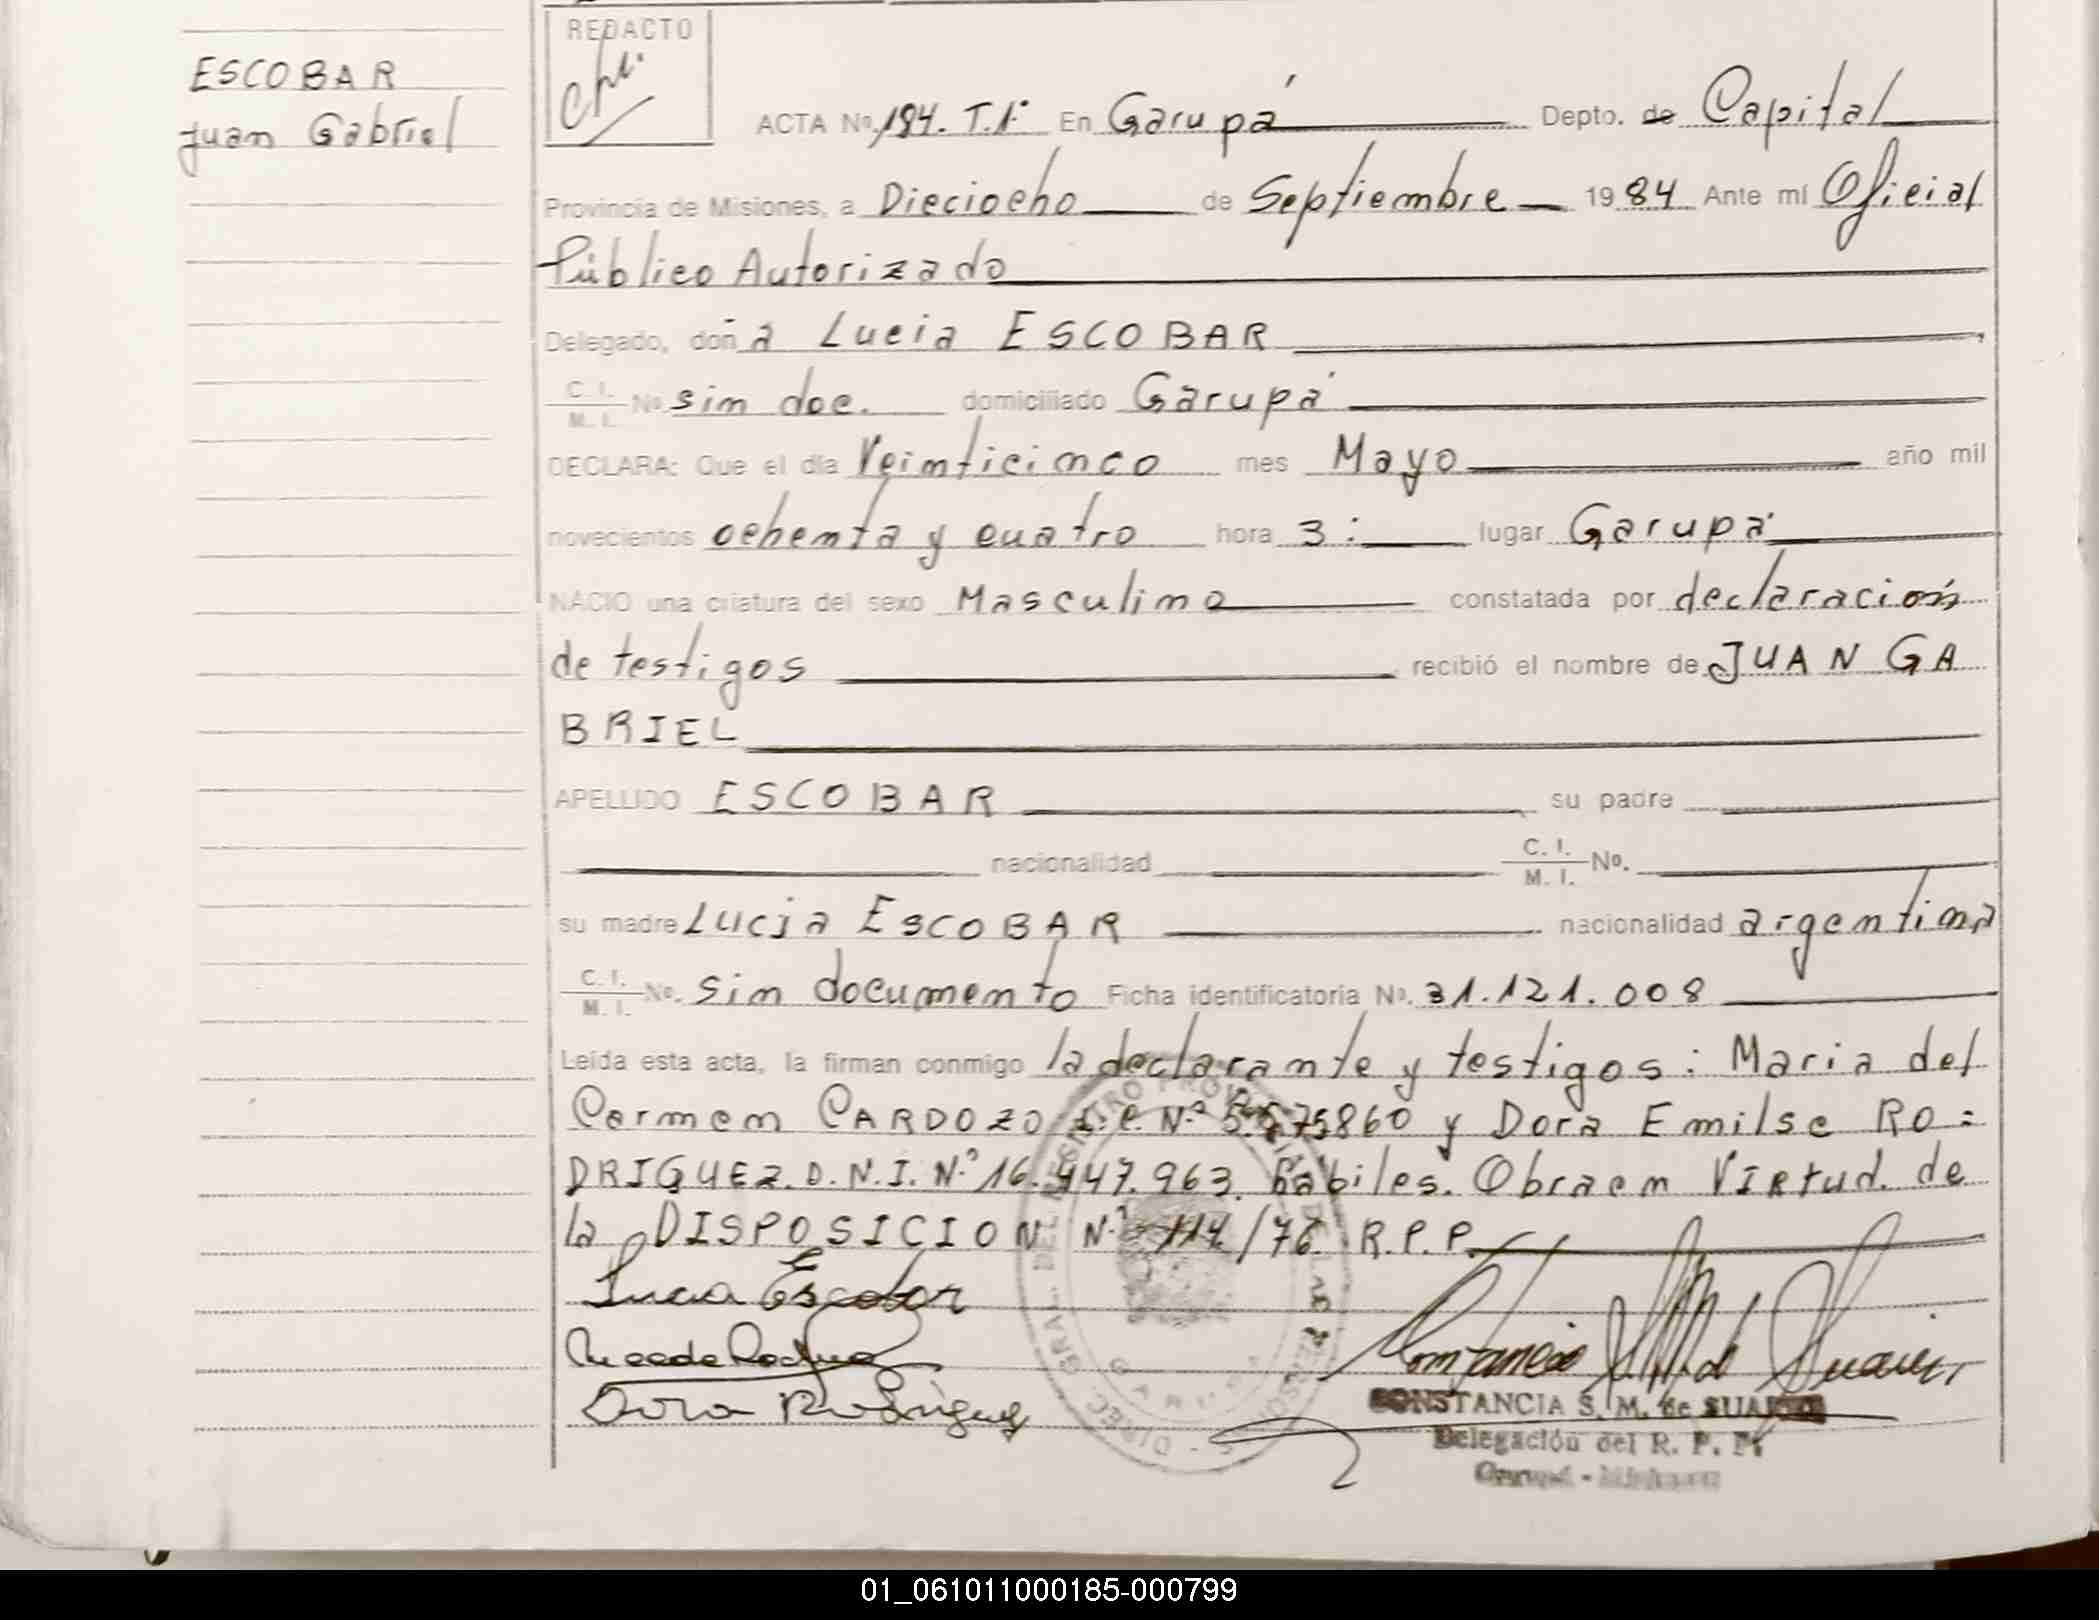 ESCOBAR
Juan Gabriel
REDACTO
ACTA Nº 184. T.1º En Garupá Depto. de Capital
Provincia de Misiones, a Dieciocho de Septiembre 1984 Ante mí Oficial
Público Autorizado
Delegado, doña Lucia ESCOBAR
C. I. / M. I. Nº sin doc. domiciliado Garupá
DECLARA: Que el día Veinticinco mes Mayo año mil
novecientos ochenta y cuatro hora 3: lugar Garupá
NACIO una criatura del sexo Masculino constatada por declaración
de testigos recibió el nombre de JUAN GA
BRIEL
APELLIDO ESCOBAR su padre
nacionalidad C. I. / M. I. Nº.
su madre Lucia ESCOBAR nacionalidad argentina
C. I. / M. I. Nº. sin documento Ficha identificatoria Nº. 31.121.008
Leída esta acta, la firman conmigo la declarante y testigos: Maria del
Carmen CARDOZO L.C. Nº 5.575860 y Dora Emilse RO=
DRIGUEZ. D.N.I. Nº 16.447.963. habiles. Obra en VIRtud. de
la DISPOSICION Nº 114/76 R.P.P.
Lucia Escobar
Dora Rodriguez
CONSTANCIA S. M. de SUAREZ
Delegación del R. P. P.
01_061011000185-000799